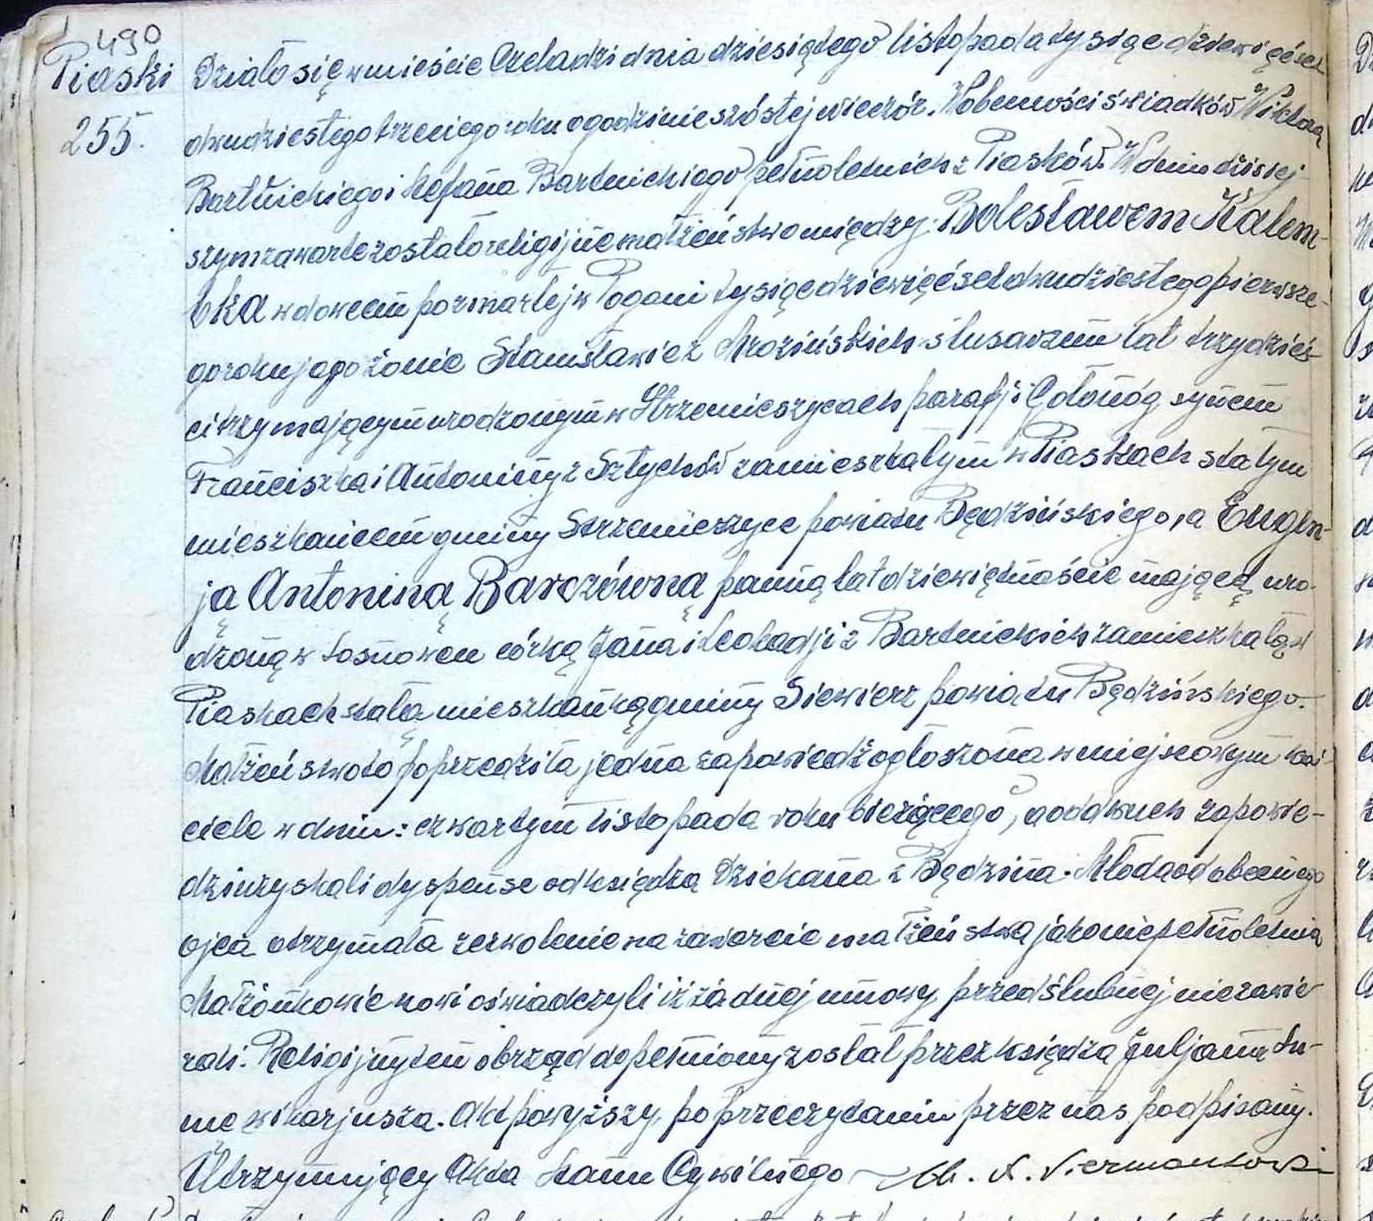 490
Piaski
255.
Działo się w mieście Czeladzi dnia dziesiątego listopada tysiąc dziewięćset
dwudziestego trzeciego roku o godzinie szóstej wieczór. W obecności świadków Wiktora
Bartnickiego i Stefana Bartnickiego pełnoletnich z Piasków. W dniu dzisiej-
szym zawarte zostało religijne małżeństwo między: Bolesławem Kalem-
bka wdowcem po zmarłej w Pogoni tysiąc dziewięćset dwudziestego pierwsze-
go roku jego żonie Stanisławie z Mrozińskich ślusarzem lat trzydzieś-
ci trzy mającym urodzonym w Strzemieszycach parafji Gołonóg synem
Franciszka i Antoniny z Sztychów zamieszkałym w Piaskach stałym
mieszkańcem gminy Strzemieszyce powiatu Będzińskiego, a Eugen-
ją Antoniną Barczówną panną lat dziewiętnaście mającą uro-
dzoną w Sosnowcu córką Jana i Leokadji z Bartnickich zamieszkałą w
Piaskach stałą mieszkanką gminy Siewierz powiatu Będzińskiego.
Małżeństwo to poprzedziła jedna zapowiedź ogłoszona w miejscowym koś-
ciele w dniu: czwartym listopada roku bieżącego, a od dwuch zapowie-
dzi uzyskali dyspense od księdza Dziekana z Będzina. Młoda od obecnego
ojca otrzymała zezwolenie na zawarcie małżeństwa jako niepełnoletnia
Małżonkowie nowi oświadczyli iż żadnej umowy przedślubnej nie zawie-
rali. Religijny ten obrzęd dopełniony został przez księdza Juljana
wikarjusza. Akt powyższy, po przeczytaniu przez nas podpisany.
Utrzymujący Akta Stanu Cywilnego